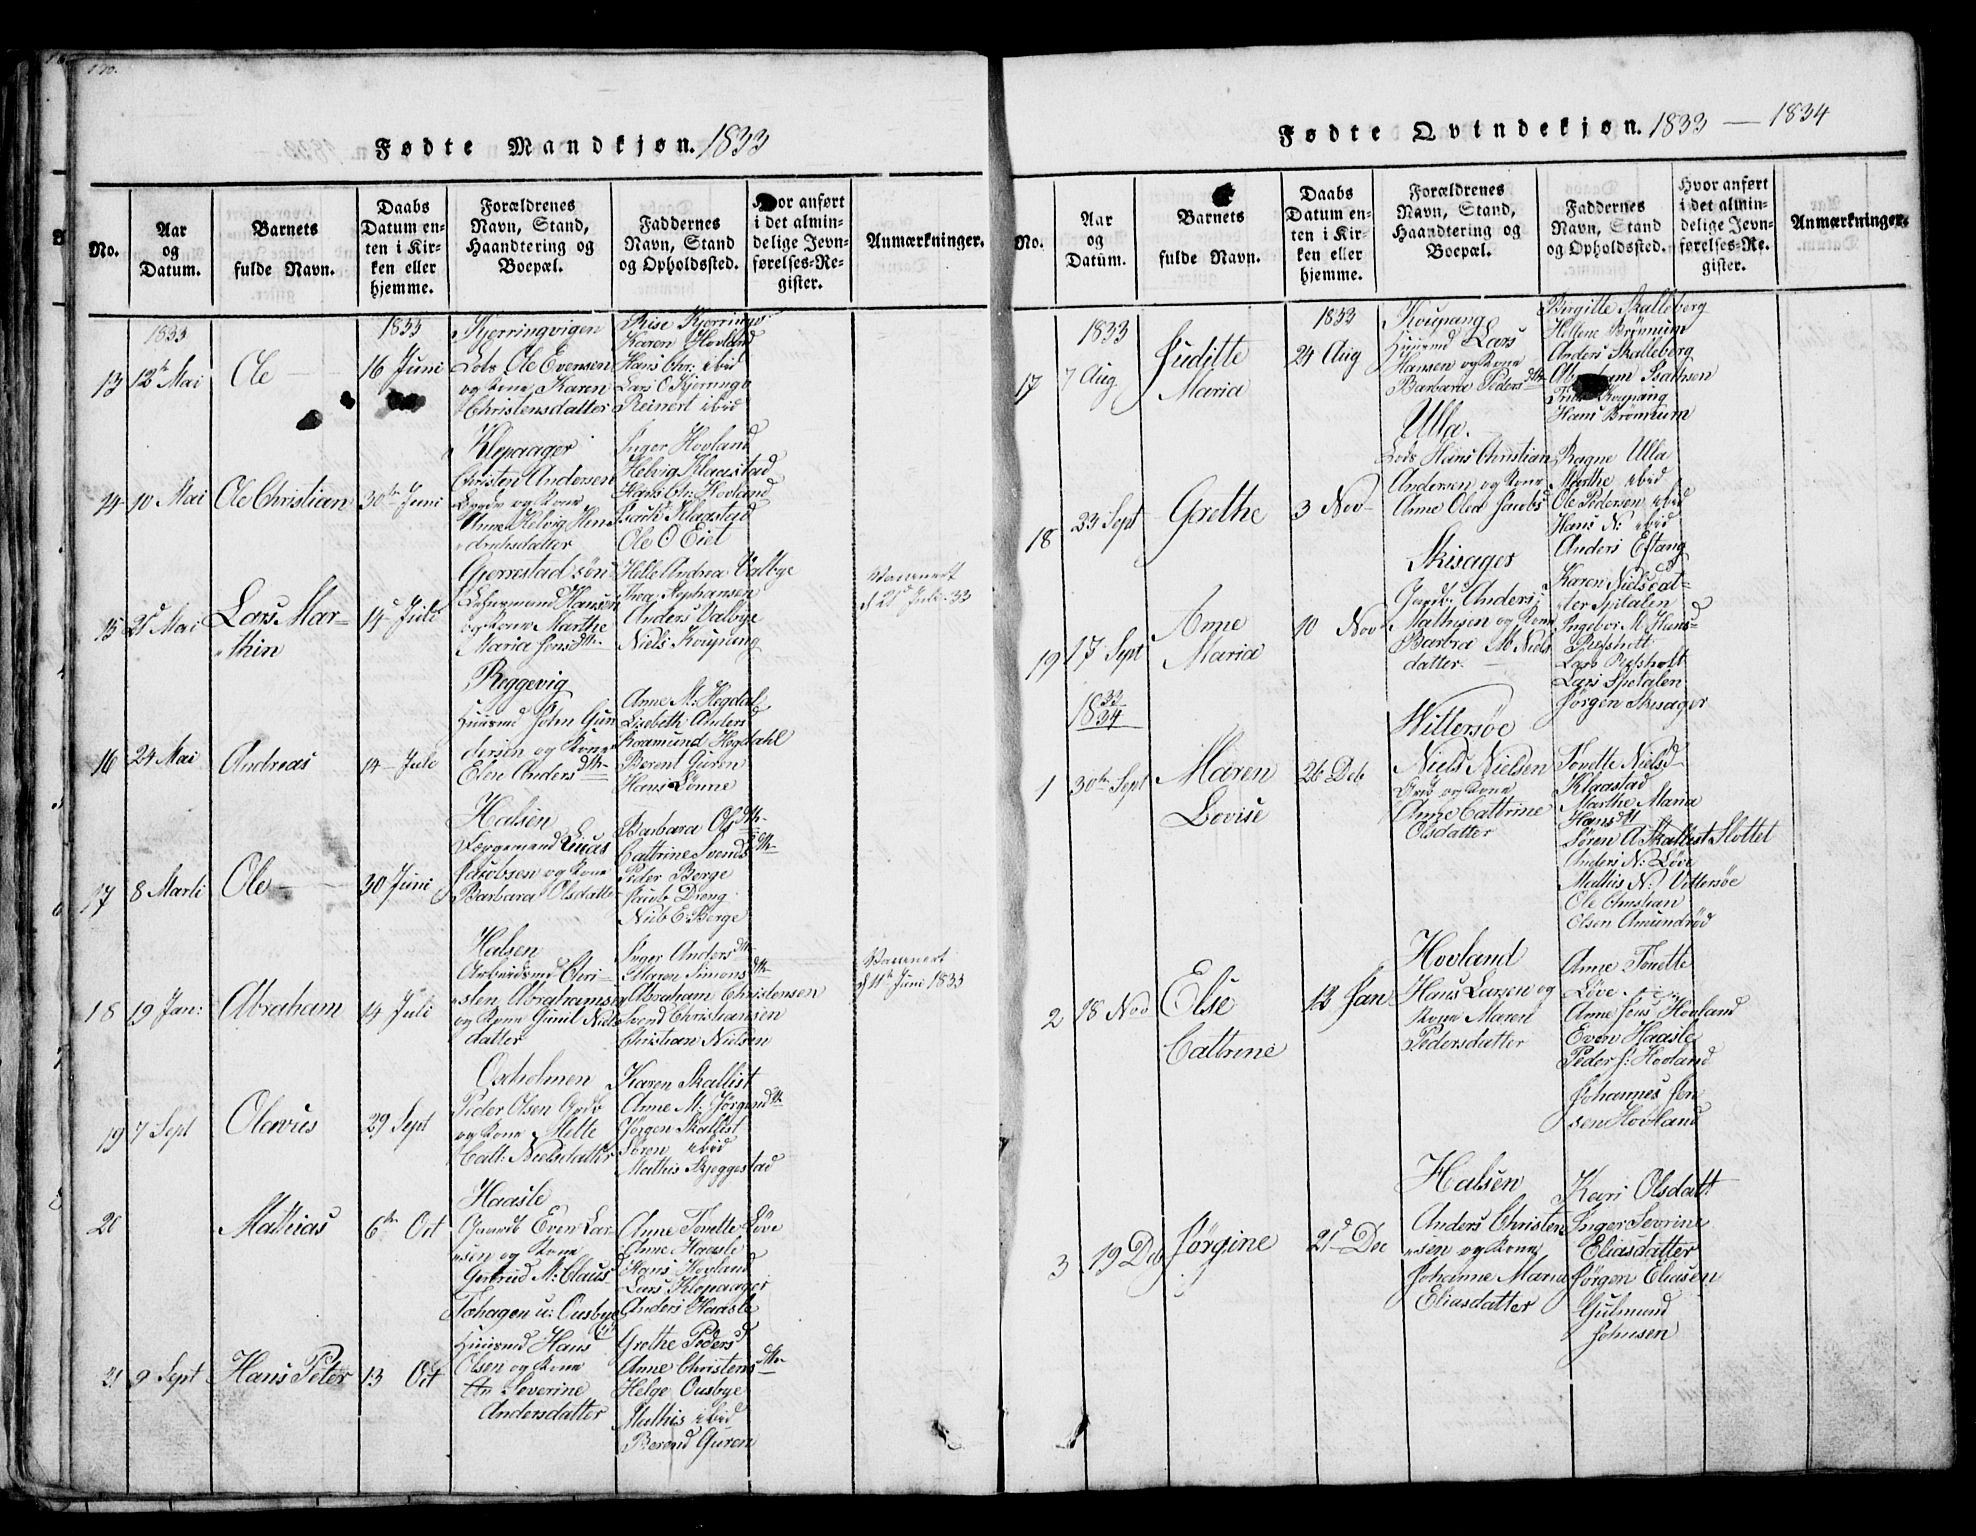 170.
Fødte Mandkjøn. 1833
No.
Aar
og
Datum.
Barnets
fulde Navn.
Daabs
Datum en-
ten i Kir-
ken eller
hjemme.
Forældrenes
Navn, Stand,
Haandtering og
Boepæl.
Faddernes
Navn, Stand
og Opholdssted.
Hvor anført
i det almin-
delige Jevn-
førelses-Re-
gister.
Anmærkninger.
1833
13 12te Mai
Ole
1833
16 Juni
Kjerringvigen
Lods Ole Evensen
og Kone Karen
Christensdatter
Rise Kjerringv:
Karen Hovland
Hans Chr: ibid
Lars O Kjerringv
Reinert ibid
14 10 Mai
Ole Christian
30te Juni
Klepaager
Christen Andersen
og Kone
Anne Helvig Hen
driksdatter
Inger Hovland
Helvig Klaastad
Hans Chr: Hovland
Isach Klaastad
Ole O Eiet
15 21d Mai
Lars Mar-
thin
14 Juli
Gjerrestad søn
Hansen
og Kone Marthe
Maria Jensdtr.
Helle Andrea Valbye
Thea Stephansen
Anders Valbye
Niels Koupang
Vaccineret
d 21d Juli 33
16 24 Mai
Andreas
14 Juli
Reggevig
Huusmd John Gun
dersen og Kone
Elen Andersdtr
Anne M: Hegdal
Lisebeth Andersd
Roamund Hegdahl
Berent Guren
Hans Lønne
17 8 Marti
Ole
30 Juni
Halsen
Færgemand Lucas
Jacobsen og Kone
Barbara Olsdatte
Barbara Olsdtr
Cattrine Svendsdtr
Peder Berge
Jacob Dreng
Niels E Berge
18 19 Jan:
Abraham
14 Juli
Halsen
Arbeidsmd Chri-
sten Abrahamsen
og Kone Gunil Niels
datter
Inger Andersdtr
Maren Simonsdtr
Abraham Christensen
Svend Christiansen
Christian Nielsen
Vaccineret
d 11te Juni 1833
19 7 Sept
Olavus
29 Sept
Oxholmen
Peder Olsen Grdb
og Kone Mette
Catt: Nielsdatter
Karen Skallist
Anne M: Jørgensdtr
Jørgen Skallist
Søren ibid
Mathis Skjeggestad
20
Mathias
6te Oct
Haasle
Gaardb Even Lar
sen og Kone
Gertrud M: Claus
Anne Tonette Løve
Anne Haasle
Hans Hovland
Lars Klepaager
Anders Haasle
21 9 Sept
Hans Peter
13 Oct
Tohagen u: Ousbye
Huusmd Hans
Olsen og Kone
An Severine
Andersdatter
Grethe Pedersd
Anne Christensdtr
Helge Ousbye
Mathis ibid
Berend Guren
Fødte Qvindekjøn. 1833 — 1834
No.
Aar
og
Datum.
Barnets
fulde Navn.
Daabs
Datum en-
ten i Kir-
ken eller
hjemme.
Forældrenes
Navn, Stand,
Haandtering og
Boepæl.
Faddernes
Navn, Stand
og Opholdssted.
Hvor anført
i det almin-
delige Jevn-
førelses-Re-
gister.
Anmærkninger.
1833
17 7 Aug
Juditte
Maria
1833
24 Aug
Koupang
Huusmd Lars
Hansen og Kone
Barbara Pedersdtr
Birgitte Skalleberg
Hellene Brönnum
Anders Skalleberg
Isachsen
Koupang
Hans Brönnum
18 23 Sept
Grethe
3 Nov
Ulla.
Lods Hans Christian
Andersen og Kone
Anne Olea Jacobsd
Ragne Ulla
Marthe ibid
Ole Pedersen ibid
Hans N: ibid
Anders Eftang
19 17 Sept
Anne
Maria
10 Nov
Skisager
Gardb. Anders
Mathisen og Kone
Barbra M Niels
datter.
Karen Nielsdat-
ter Spitalen
Ingebor M Huns-
Refsholt
Lars Refsholt
Lars Spetalen
Jørgen Skisager
1833/34
1 30te Sept
Maren
Lovise
26 Deb
Wittersøe
Niels Nielsen
Grdb og Kone
Anne Cattrine
Olsdatter
Tonette Nielsd
Klaastad
Marthe Maria
Hansdtr
Søren A Skallist Slottet
Anders N: Løve
Mathis N: Vittersøe
Ole Christian
Olsen Amundrød
2 18 Nov
Else
Cattrine
12 Jan
Hovland
Hans Larsen og
Kone Maren
Pedersdatter
Anne Tonette
Løve
Anne Jens Hovland
Even Haasle
Peder J: Hovland
Johannes Jen
sen Hovland
3 19 Deb
Jørgine
21d Dec
Halsen
Anders Christen
sen og Kone
Johanne Maria
Eliasdatter
Kari Olsdatt
Inger Sevrine
Eliasdatter
Jørgen Eliasen
Gulmund
Johnsen